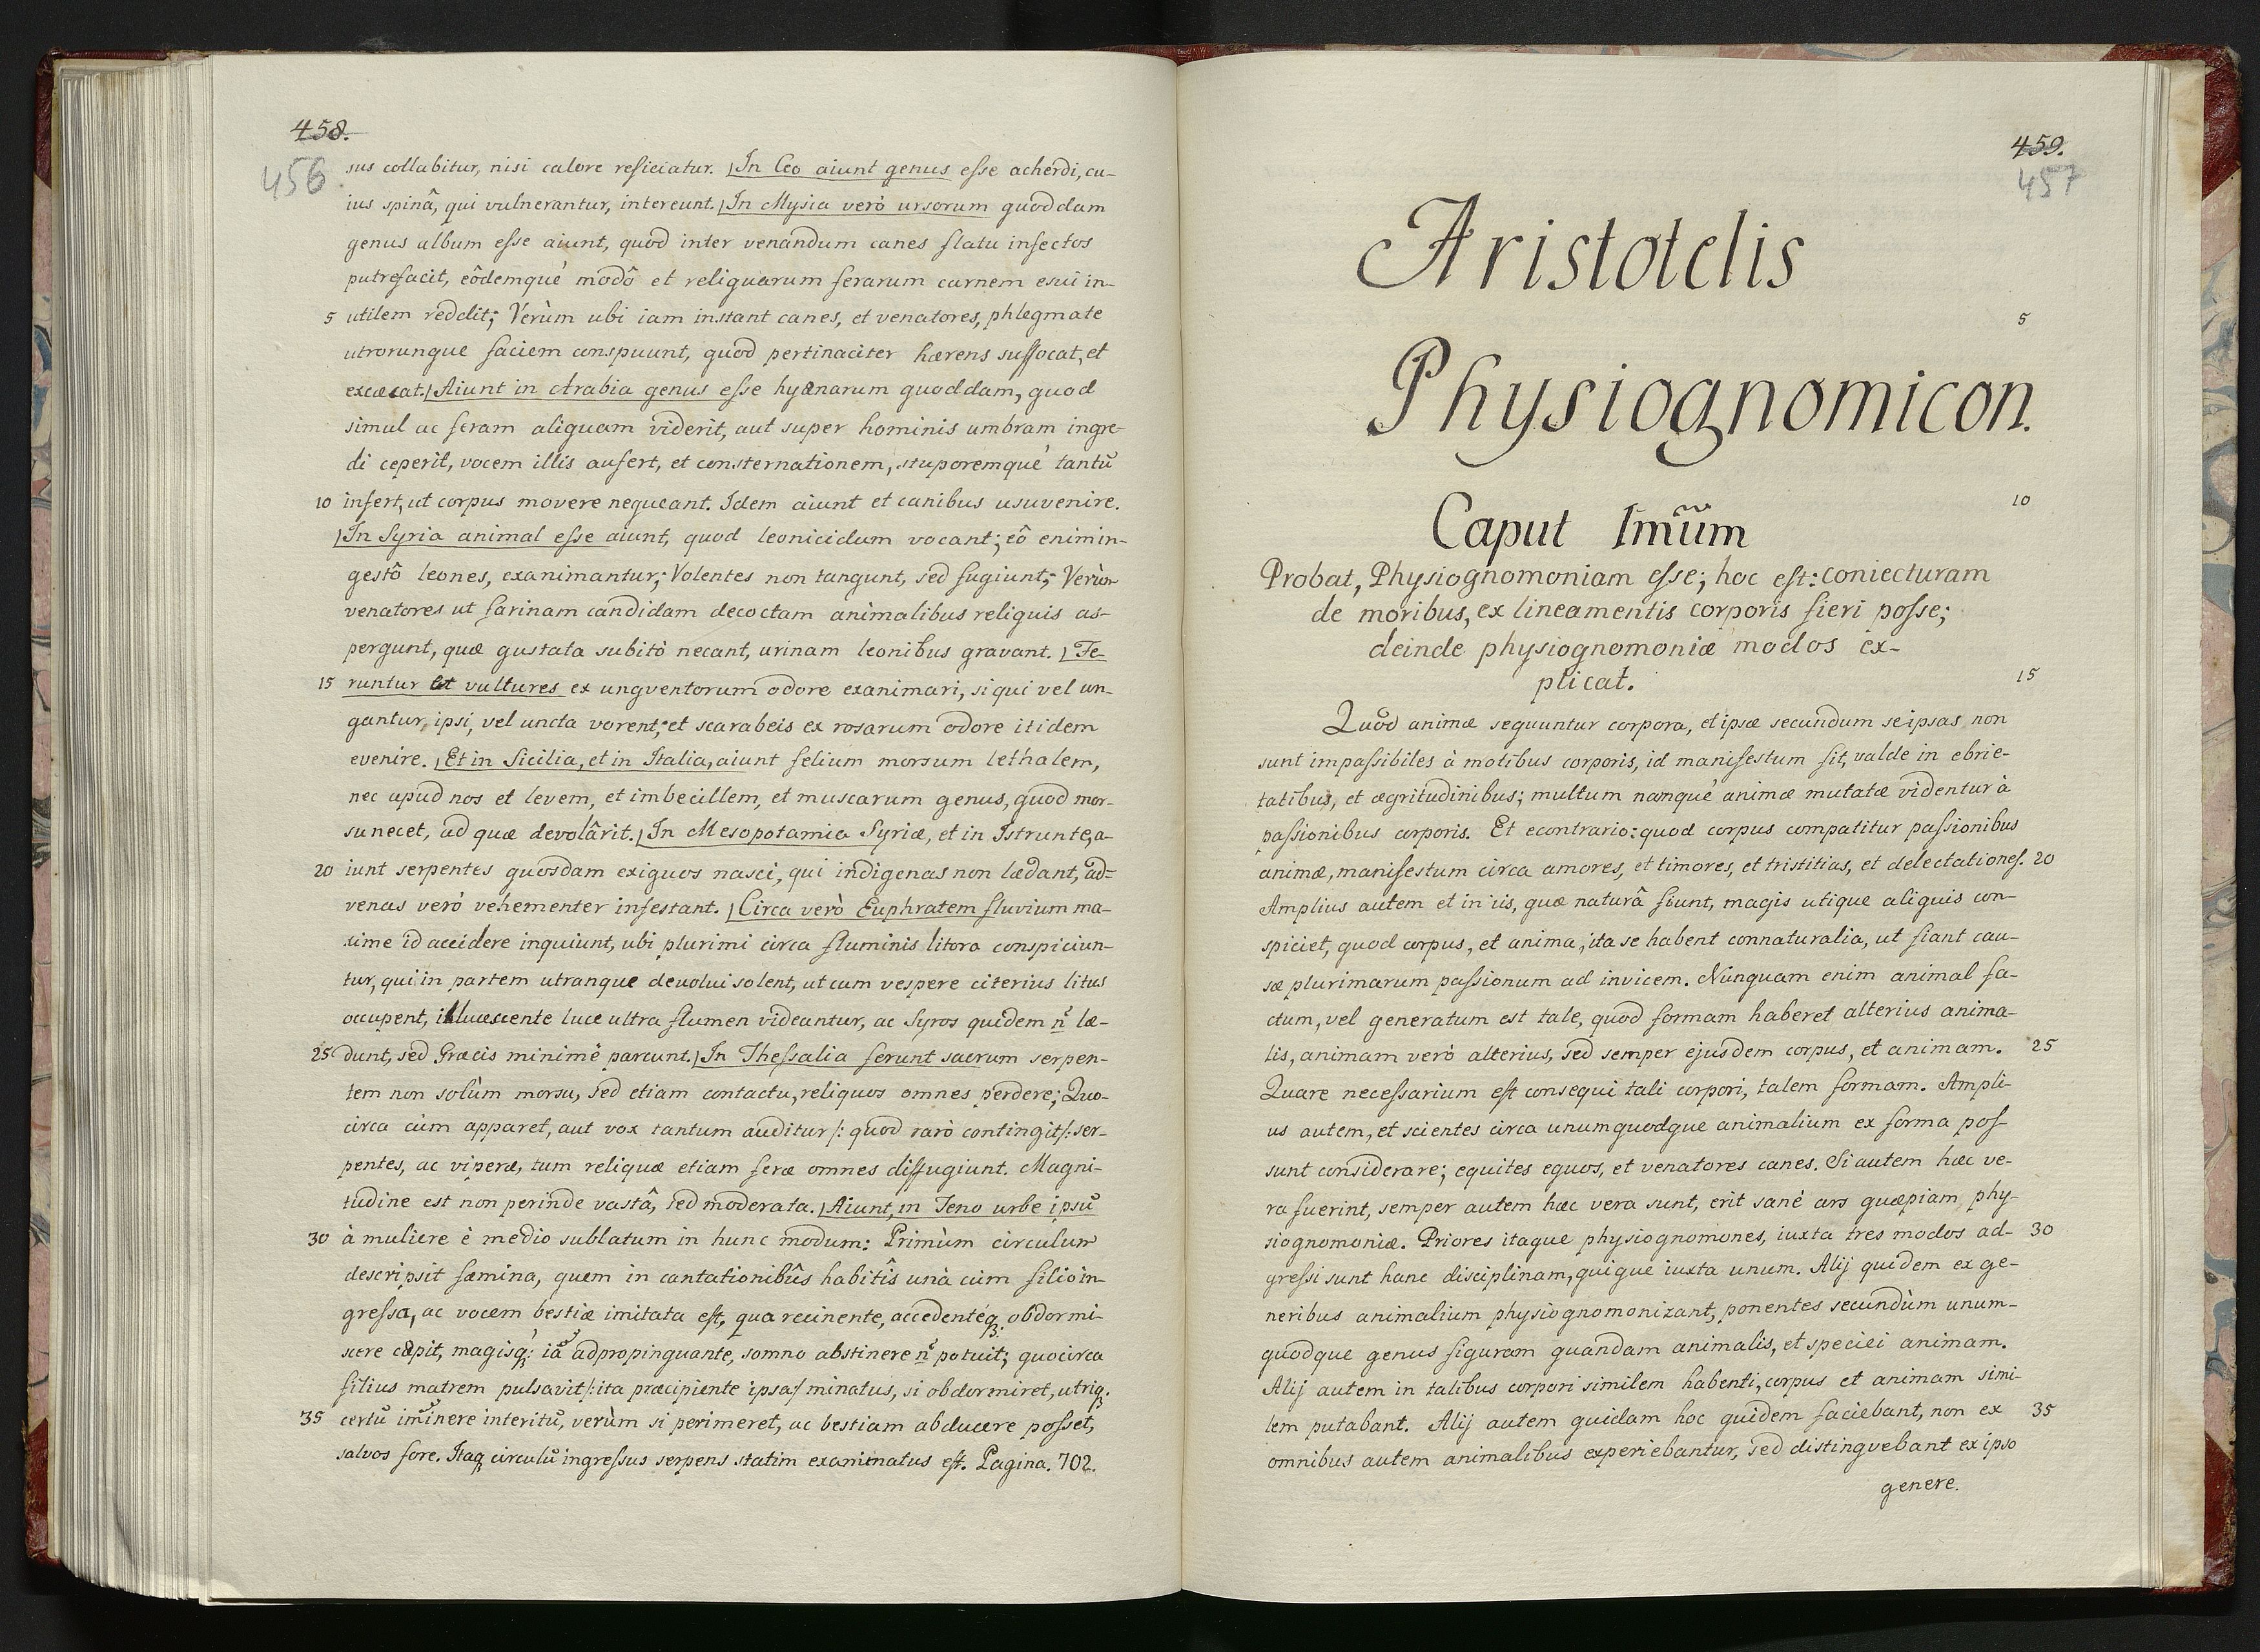 458.
456
sus collabitur, nisi calore reficiatur. In Ceo aiunt genus esse acherdi, cu-
ius spinâ, qui vulnerantur, intereunt. In Mysia verò ursorum quoddam
genus album esse aiunt, quod inter venandum canes flatu infectos
putrefacit, eôdemquè modô et reliquarum ferarum carnem esui in-
5 utilem reddit; Verùm ubi iam instant canes, et venatores, phlegmate
utrorunque faciem conspuunt, quod pertinaciter hærens suffocat, et
excæcat. Aiunt in Arabia genus esse hyænarum quoddam, quod
simul ac feram aliquam viderit, aut super hominis umbram ingre-
di ceperit, vocem illis aufert, et consternationem, stuporemquè tantū
10 infert, ut corpus movere nequeant. Idem aiunt et canibus usuvenire.
In Syria animal esse aiunt, quod leonicidum vocant; eô enim in-
gestô leones, exanimantur; Volentes non tangunt, sed fugiunt; Verùm
venatores ut farinam candidam decoctam animalibus reliquis as-
pergunt, quæ gustata subitò necant, urinam leonibus gravant. Fe-
15 runtur et vultures ex ungventorum odore exanimari, si qui vel un-
gantur ipsi, vel uncta vorent; et scarabeis ex rosarum odore itidem
evenire. Et in Sicilia, et in Italia, aiunt felium morsum lethalem,
nec apud nos et levem, et imbecillem, et muscarum genus, quod mor-
su necet, ad quæ devolârit. In Mesopotamia Syriæ, et in Istrunte, a-
20 iunt serpentes quosdam exiguos nasci, qui indigenas non lædant, ad-
venas verò vehementer infestant. Circa verò Euphratem fluvium ma-
xime id accidere inquiunt, ubi plurimi circa fluminis litora conspiciun-
tur, qui in partem utranque devolui solent, ut cum vespere citerius litus
occupent, illucescente luce ultra flumen videantur, ac Syros quidem n̄ læ-
25 dunt, sed Græcis minimè parcunt. In Thessalia ferunt sacrum serpen-
tem non solùm morsu, sed etiam contactu, reliquos omnes perdere; Quo-
circa cùm apparet, aut vox tantum auditur /: quod rarò contingit :/ ser-
pentes, ac viperæ, tum reliquæ etiam feræ omnes diffugiunt. Magni-
tudine est non perinde vastâ, sed moderata. Aiunt, in Teno urbe ipsū
30 à muliere è medio sublatum in hunc modum: Primùm circulum
descripsit fæmina, quem in cantationibûs habitîs unà cùm filio in-
gressa, ac vocem bestiæ imitata est, qua recinente, accedentéq; obdormi-
scere cæpit, magisq; iā adpropinquante, somno abstinere n̄ potuit; quocirca
filius matrem pulsavit /: ita præcipiente ipsa :/ minatus, si obdormiret, utriq;
35 certū im̄inere interitū, verùm si perimeret, ac bestiam abducere posset,
salvos fore. Itaq; circulū ingressus serpens statim exanimatus est. Pagina. 702.
459.
457
Aristotelis
5
Physiognomicon.
10
Caput Imūm
Probat, Physiognomoniam esse; hoc est: coniecturam
de moribus, ex lineamentis corporis fieri posse;
deinde physiognomoniæ modos ex-
plicat. 15
Quod animæ sequuntur corpora, et ipsæ secundum seipsas non
sunt impassibiles à motibus corporis, id manifestum fit, valde in ebrie-
tatibus, et ægritudinibus; multum nanquè animæ mutatæ videntur à
passionibus corporis. Et econtrario: quod corpus compatitur passionibus
animæ, manifestum circa amores, et timores, et tristitias, et delectationes. 20
Amplius autem et in iis, quæ naturâ fiunt, magis utique aliquis con-
spiciet, quod corpus, et anima, ita se habent connaturalia, ut fiant cau-
sæ plurimarum passionum ad invicem. Nunquam enim animal fa-
ctum, vel generatum est tale, quod formam haberet alterius anima-
lis, animam verò alterius, sed semper ejusdem corpus, et animam. 25
Quare necessarium est consequi tali corpori, talem formam. Ampli-
us autem, et scientes circa unumquodque animalium ex forma pos-
sunt considerare; equites equos, et venatores canes. Si autem hæc ve-
ra fuerint, semper autem hæc vera sunt, erit sanè ars quæpiam phy-
siognomoniæ. Priores itaque physiognomones, iuxta tres modos ad- 30
gressi sunt hanc disciplinam, quique iuxta unum. Alij quidem ex ge-
neribus animalium physiognomonizant, ponentes secundùm unum-
quodque genus figuram quandam animalis, et speciei animam.
Alij autem in talibus corpori similem habenti, corpus et animam simi-
lem putabant. Alij autem quidam hoc quidem faciebant, non ex 35
omnibus autem animalibus experiebantur, sed distinguebant ex ipso
genere.